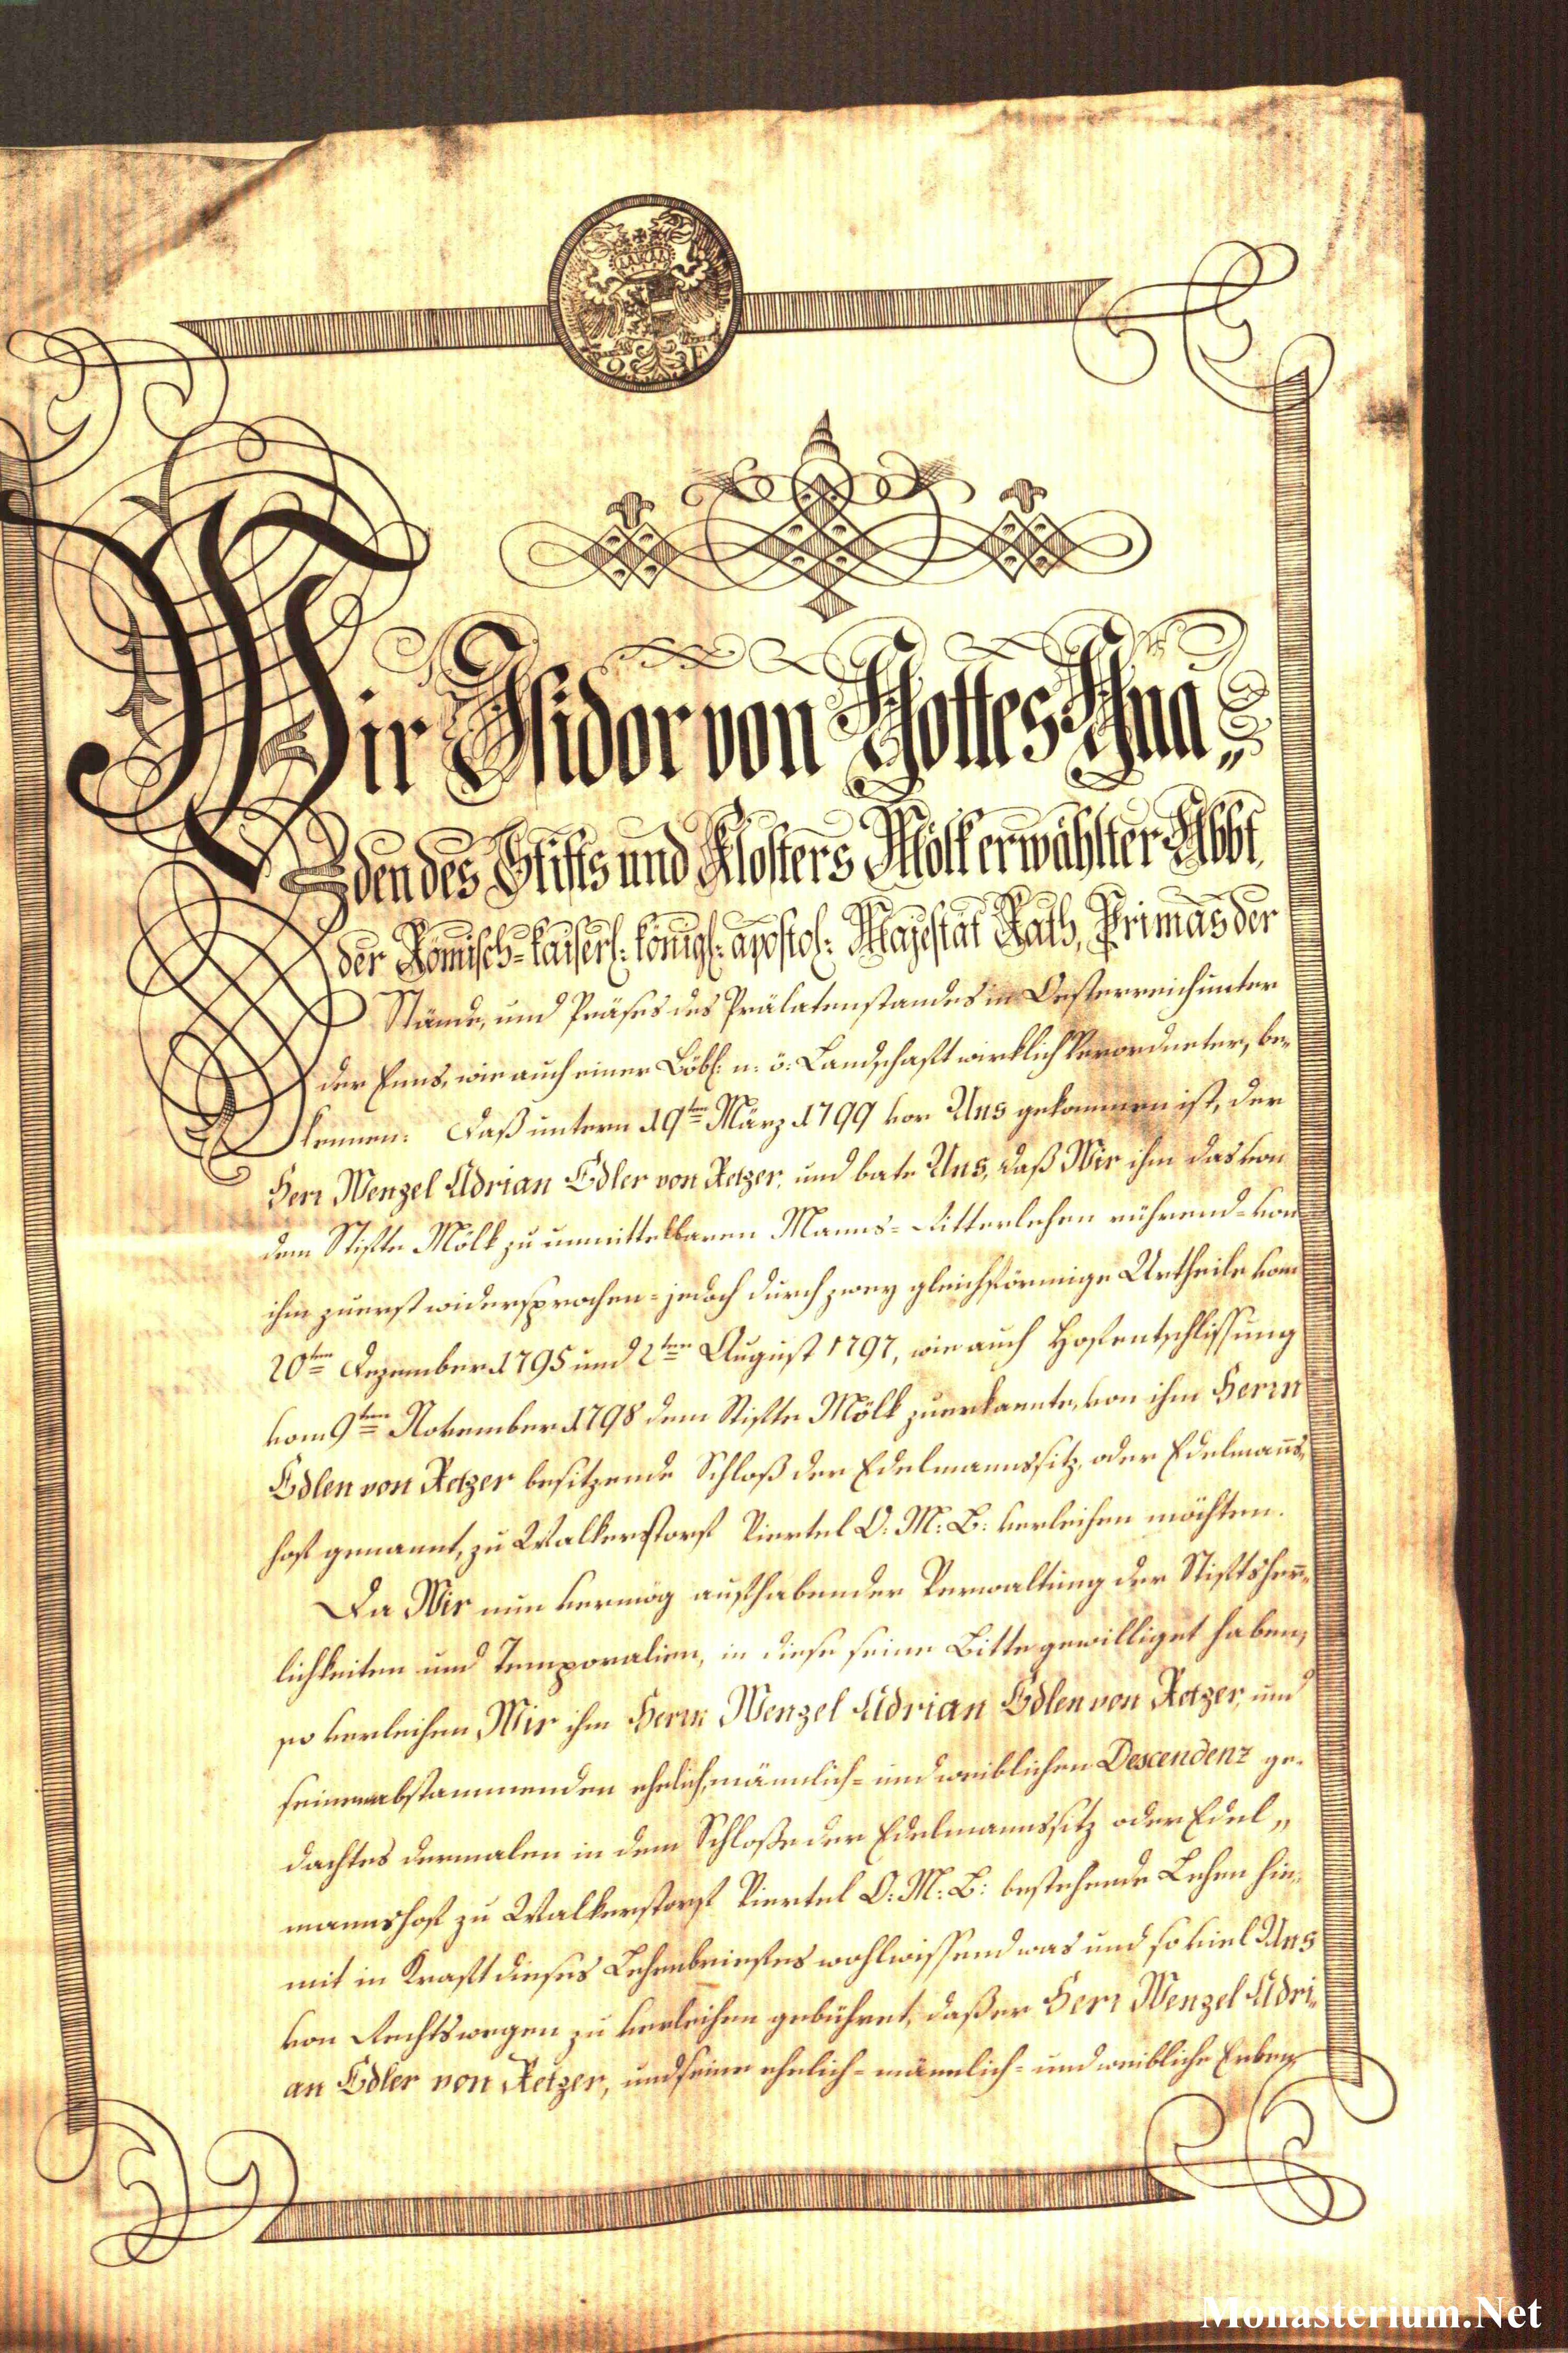 Wir Isidor von Gottes Gna„
den des Stifts und Klosters Mölk erwählter Abbt,
der Römisch-kaiserl: königl: apostol: Majestät Rath, Primas der
Stände, und Präses des Prälatenstandes in Oesterreich unter
der Enns, wie auch einer Löbl: n: ö: Landschaft wirklich Verordneter, be-
kennen: Daß untern 19ten März 1799 vor Uns gekommen ist, der
Herr Wenzel Adrian Edler von Retzer, und bate Uns, daß Wir ihm das von
dem Stifte Mölk zu unmittelbaren Manns-Ritterlehen rührend-von
ihm zuerst widersprochen-jedoch durch zwey gleichförmige Urtheile vom
20ten Dezember 1795 und 2ten August 1797, wie auch Hofentschlissung
vom 9ten November 1798 dem Stifte Mölk zuerkannte, von ihm Herrn
Edlen von Retzer besitzende Schloß der Edelmannssitz, oder Edelmanns-
hof genannt, zu Walkerstorf Viertel O: M: B: verleihen möchten.
Da Wir nun vermög aufhabender Verwaltung der Stiftsherr-
lichkeiten und Temporalien, in diese seine Bitte gewilliget haben;
so verleihen Wir ihm Herrn Wenzel Adrian Edlen von Retzer, und
seiner abstammenden ehelich, männlich- und weiblichen Descendenz ge-
dachtes dermalen in dem Schloße der Edelmannssitz oder Edel„
mannshof zu Walkerstorf Viertel O: M: B: bestehende Lehen hie-
mit in Kraft dieses Lehenbriefes wohlwissend was und so viel Uns
von Rechtswegen zu verleihen gebühret, daß er Herr Wenzel Adri-
an Edler von Retzer, und seine ehelich- männlich- und weibliche Erben
Monasterium.Net